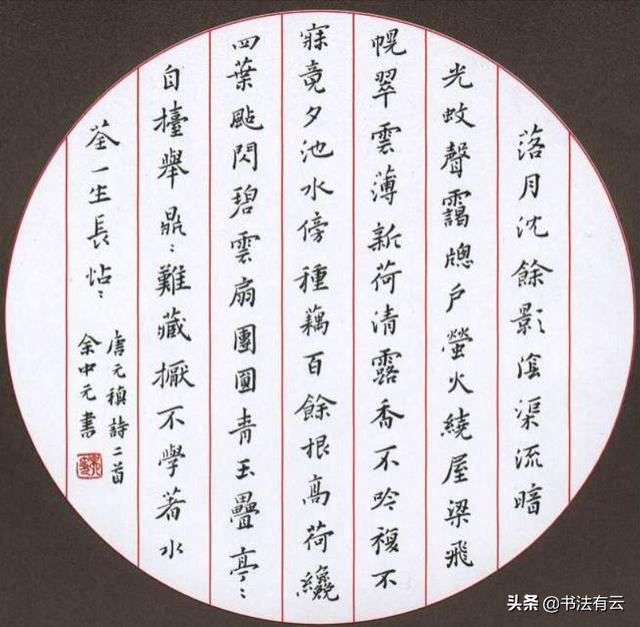 落月沈餘影陰渠流暗
光蚊聲靄牕戶螢火繞屋梁飛
幌翠雲薄新荷清露香不吟複不
寐竟夕池水傍種藕百餘根高荷纔
四葉颭閃碧雲扇團圓青玉疊亭〻
自擡舉鼎〻難藏擫不學著水
荃一生長怗〻
唐元稹詩二首
余中元書
头条 @书法有云